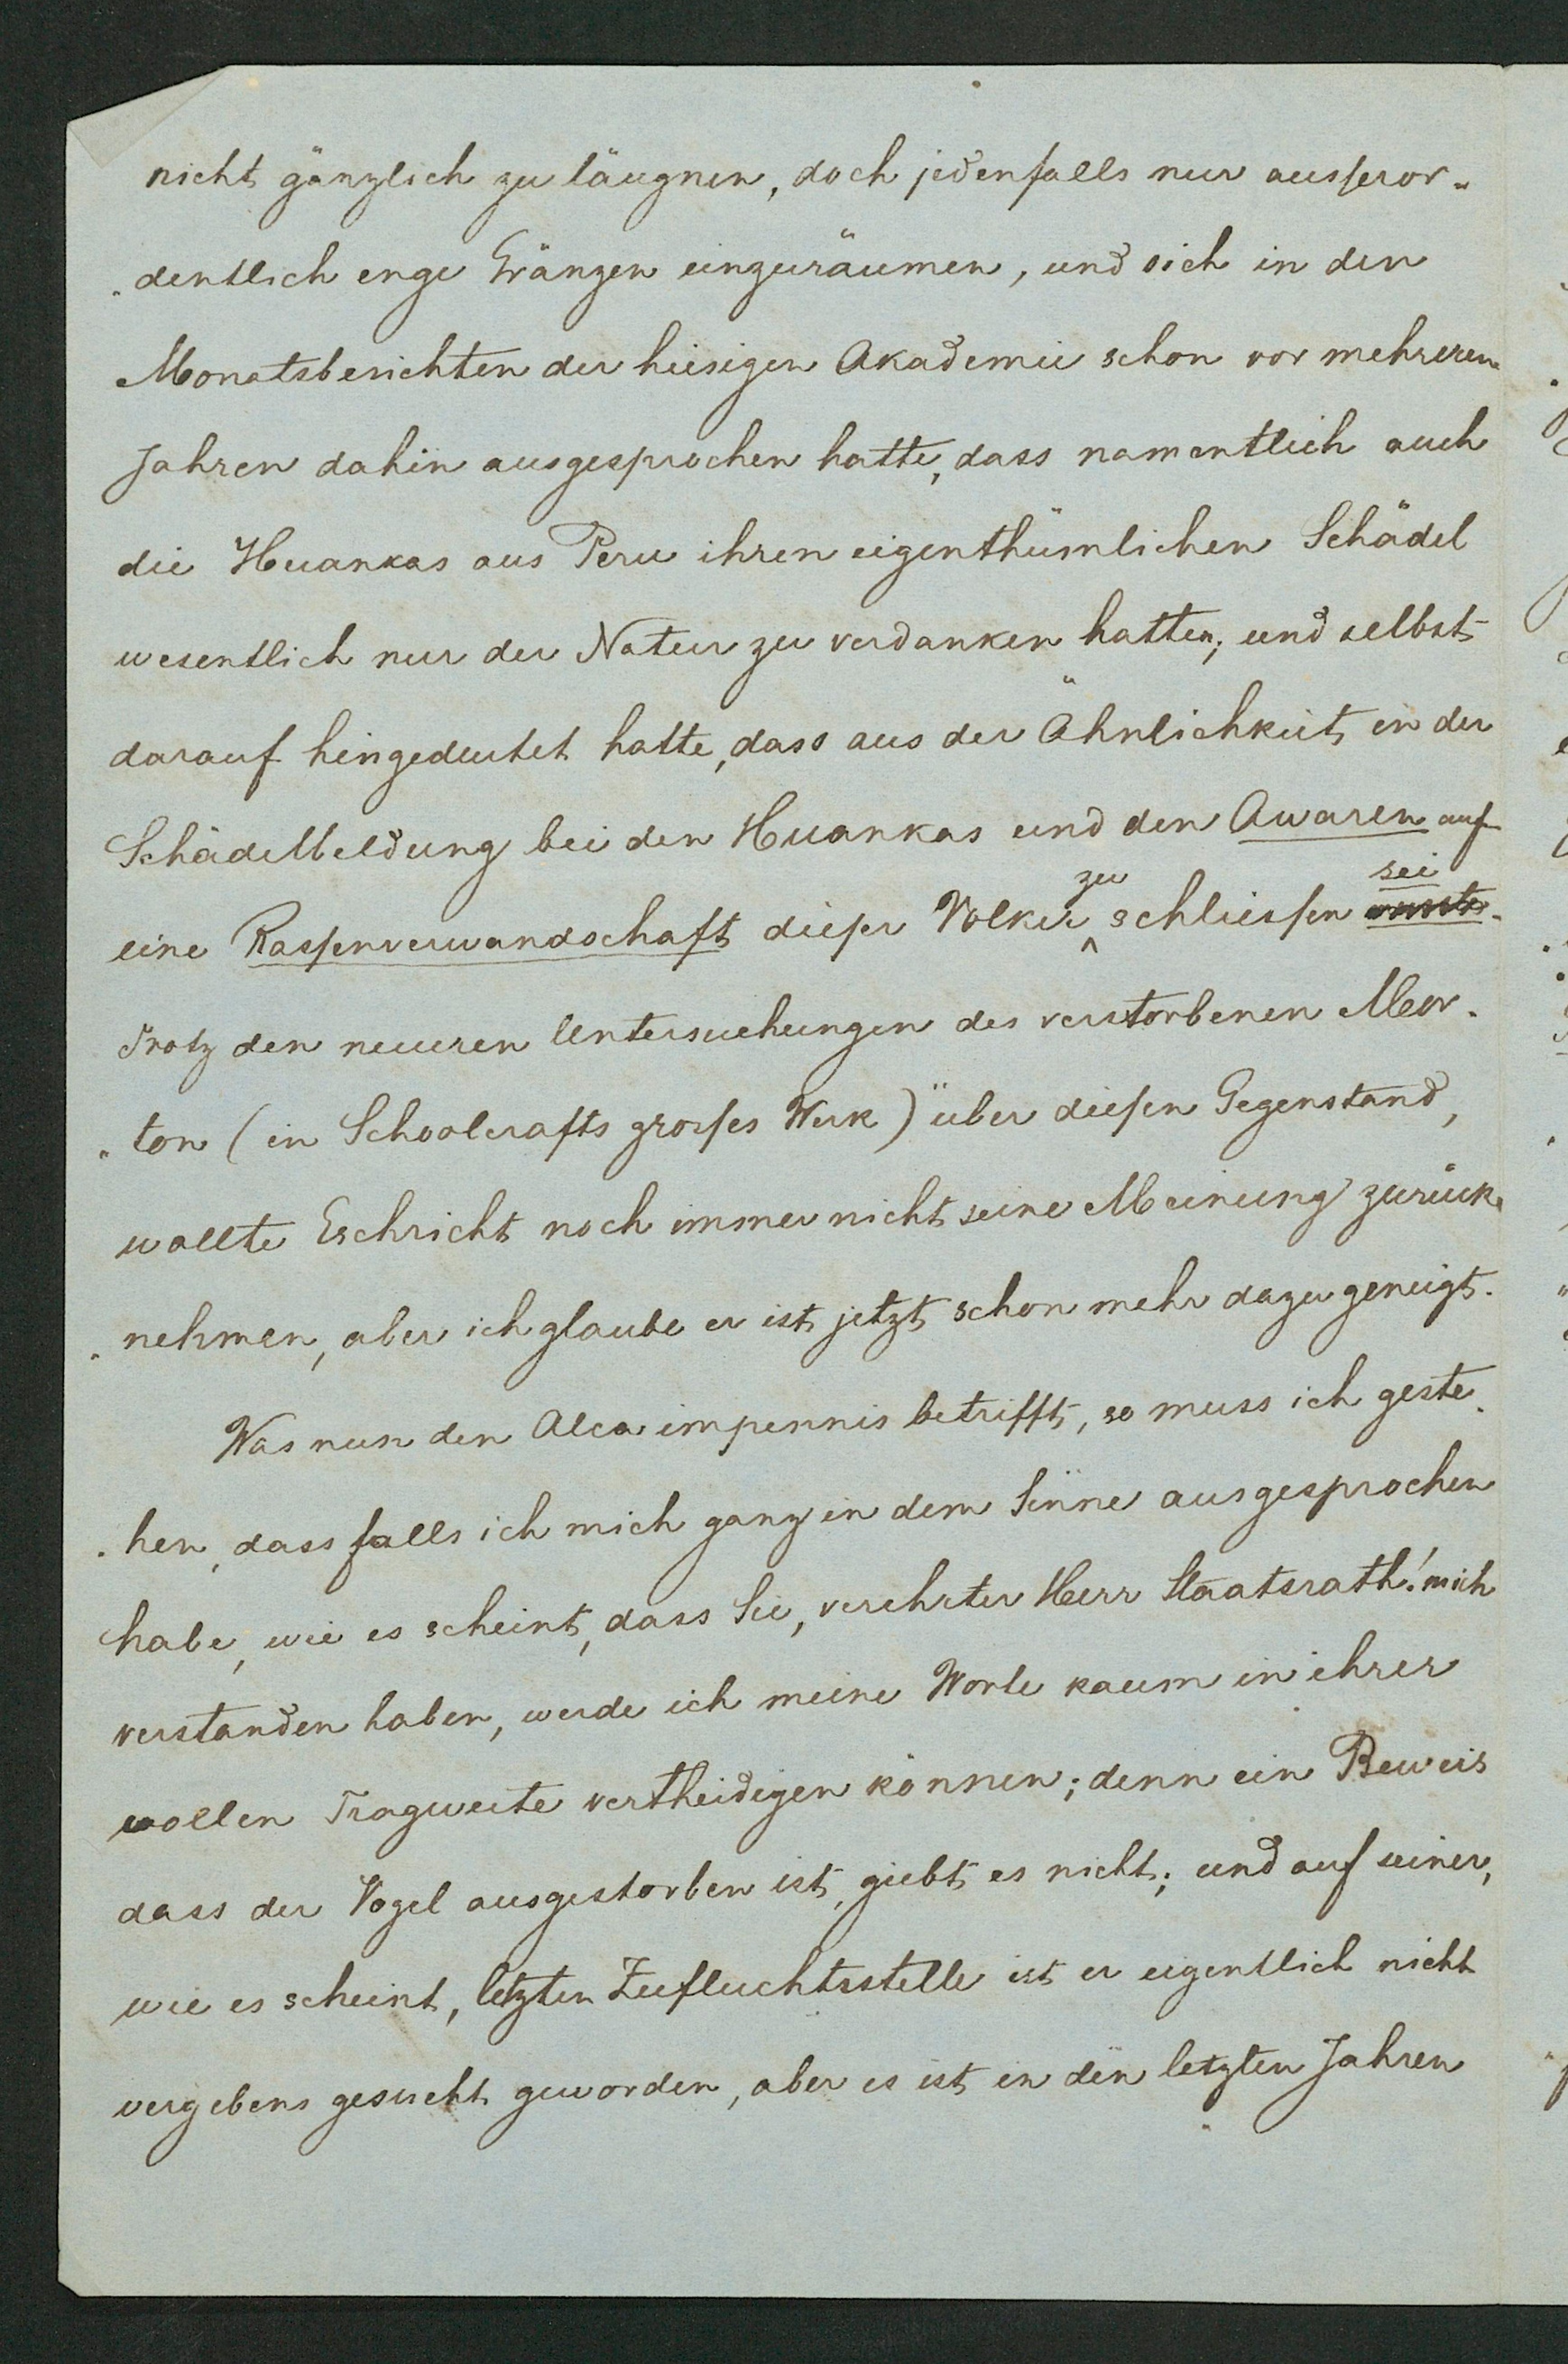 nicht gänzlich zu läugnen, doch jedenfalls nur ausseror-
-dentlich enge Gränzen einzuräumen, und sich in den
Monatsberichten der hiesigen Akademie schon vor mehreren
Jahren dahin ausgesprochen hatte, dass namentlich auch
die Huankas aus Peru ihren eigenthümlichen Schädel
wesentlich nur der Natur zu verdanken hatten; und selbst
darauf hingedeutet hatte, dass aus der Ähnlichkeit in der
Schädelbildung bei den Huankas und den Awaren auf
eine Rassenverwandschaft dieser Völker zu schliessen sei.
Trotz den neueren Untersuchungen des verstorbenen Mor-
-ton (in Schoolcrafts grosses Werk) über diesen Gegenstand,
wollte Eschricht noch immer nicht seine Meinung zurück-
-nehmen, aber ich glaube er ist jetzt schon mehr dazu geneigt.
Was nun den Alca impennis betrifft, so muss ich geste-
-hen, dass falls ich mich ganz in dem Sinne ausgesprochen
habe, wie es scheint, dass Sie, verehrter Herr Staatsrath! mich
verstanden haben, werde ich meine Worte kaum in ihrer
vollen Tragweite vertheidigen können; denn ein Beweis
dass der Vogel ausgestorben ist, giebt es nicht; und auf seiner,
wie es scheint, letzten Zufluchtsstelle ist er eigentlich nicht
vergebens gesucht geworden, aber es ist in den letzten Jahren